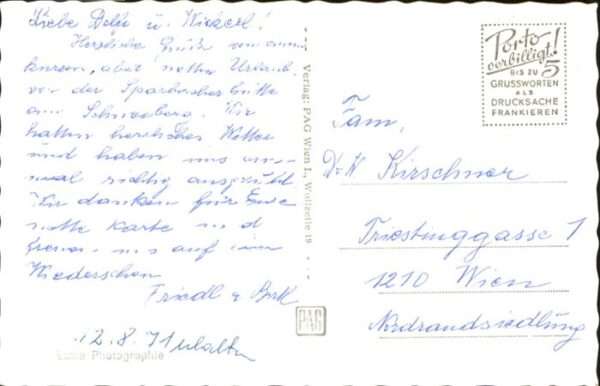 Liebe Delli u. Wickerl!
Herzliche Grüße von einem
kurzen, aber netten Urlaub
von der Sparbacher Hütte
am Schneeberg. Wir
hatten herrliches Wetter
und haben uns
richtig
Wir danken für Eure
nette Karte und
freuen uns auf ein
Wiedersehen
Friedl &
12.8.71 erhalten
Echte Photographie
Verlag: PAG Wien I., Wollzeile 19
PAG
Porto-
verbilligt!
BIS ZU 5
GRUSSWORTEN
ALS
DRUCKSACHE
FRANKIEREN
Fam.
Kirschner
Triestinggasse 1
1210 Wien
Nordrandsiedlung